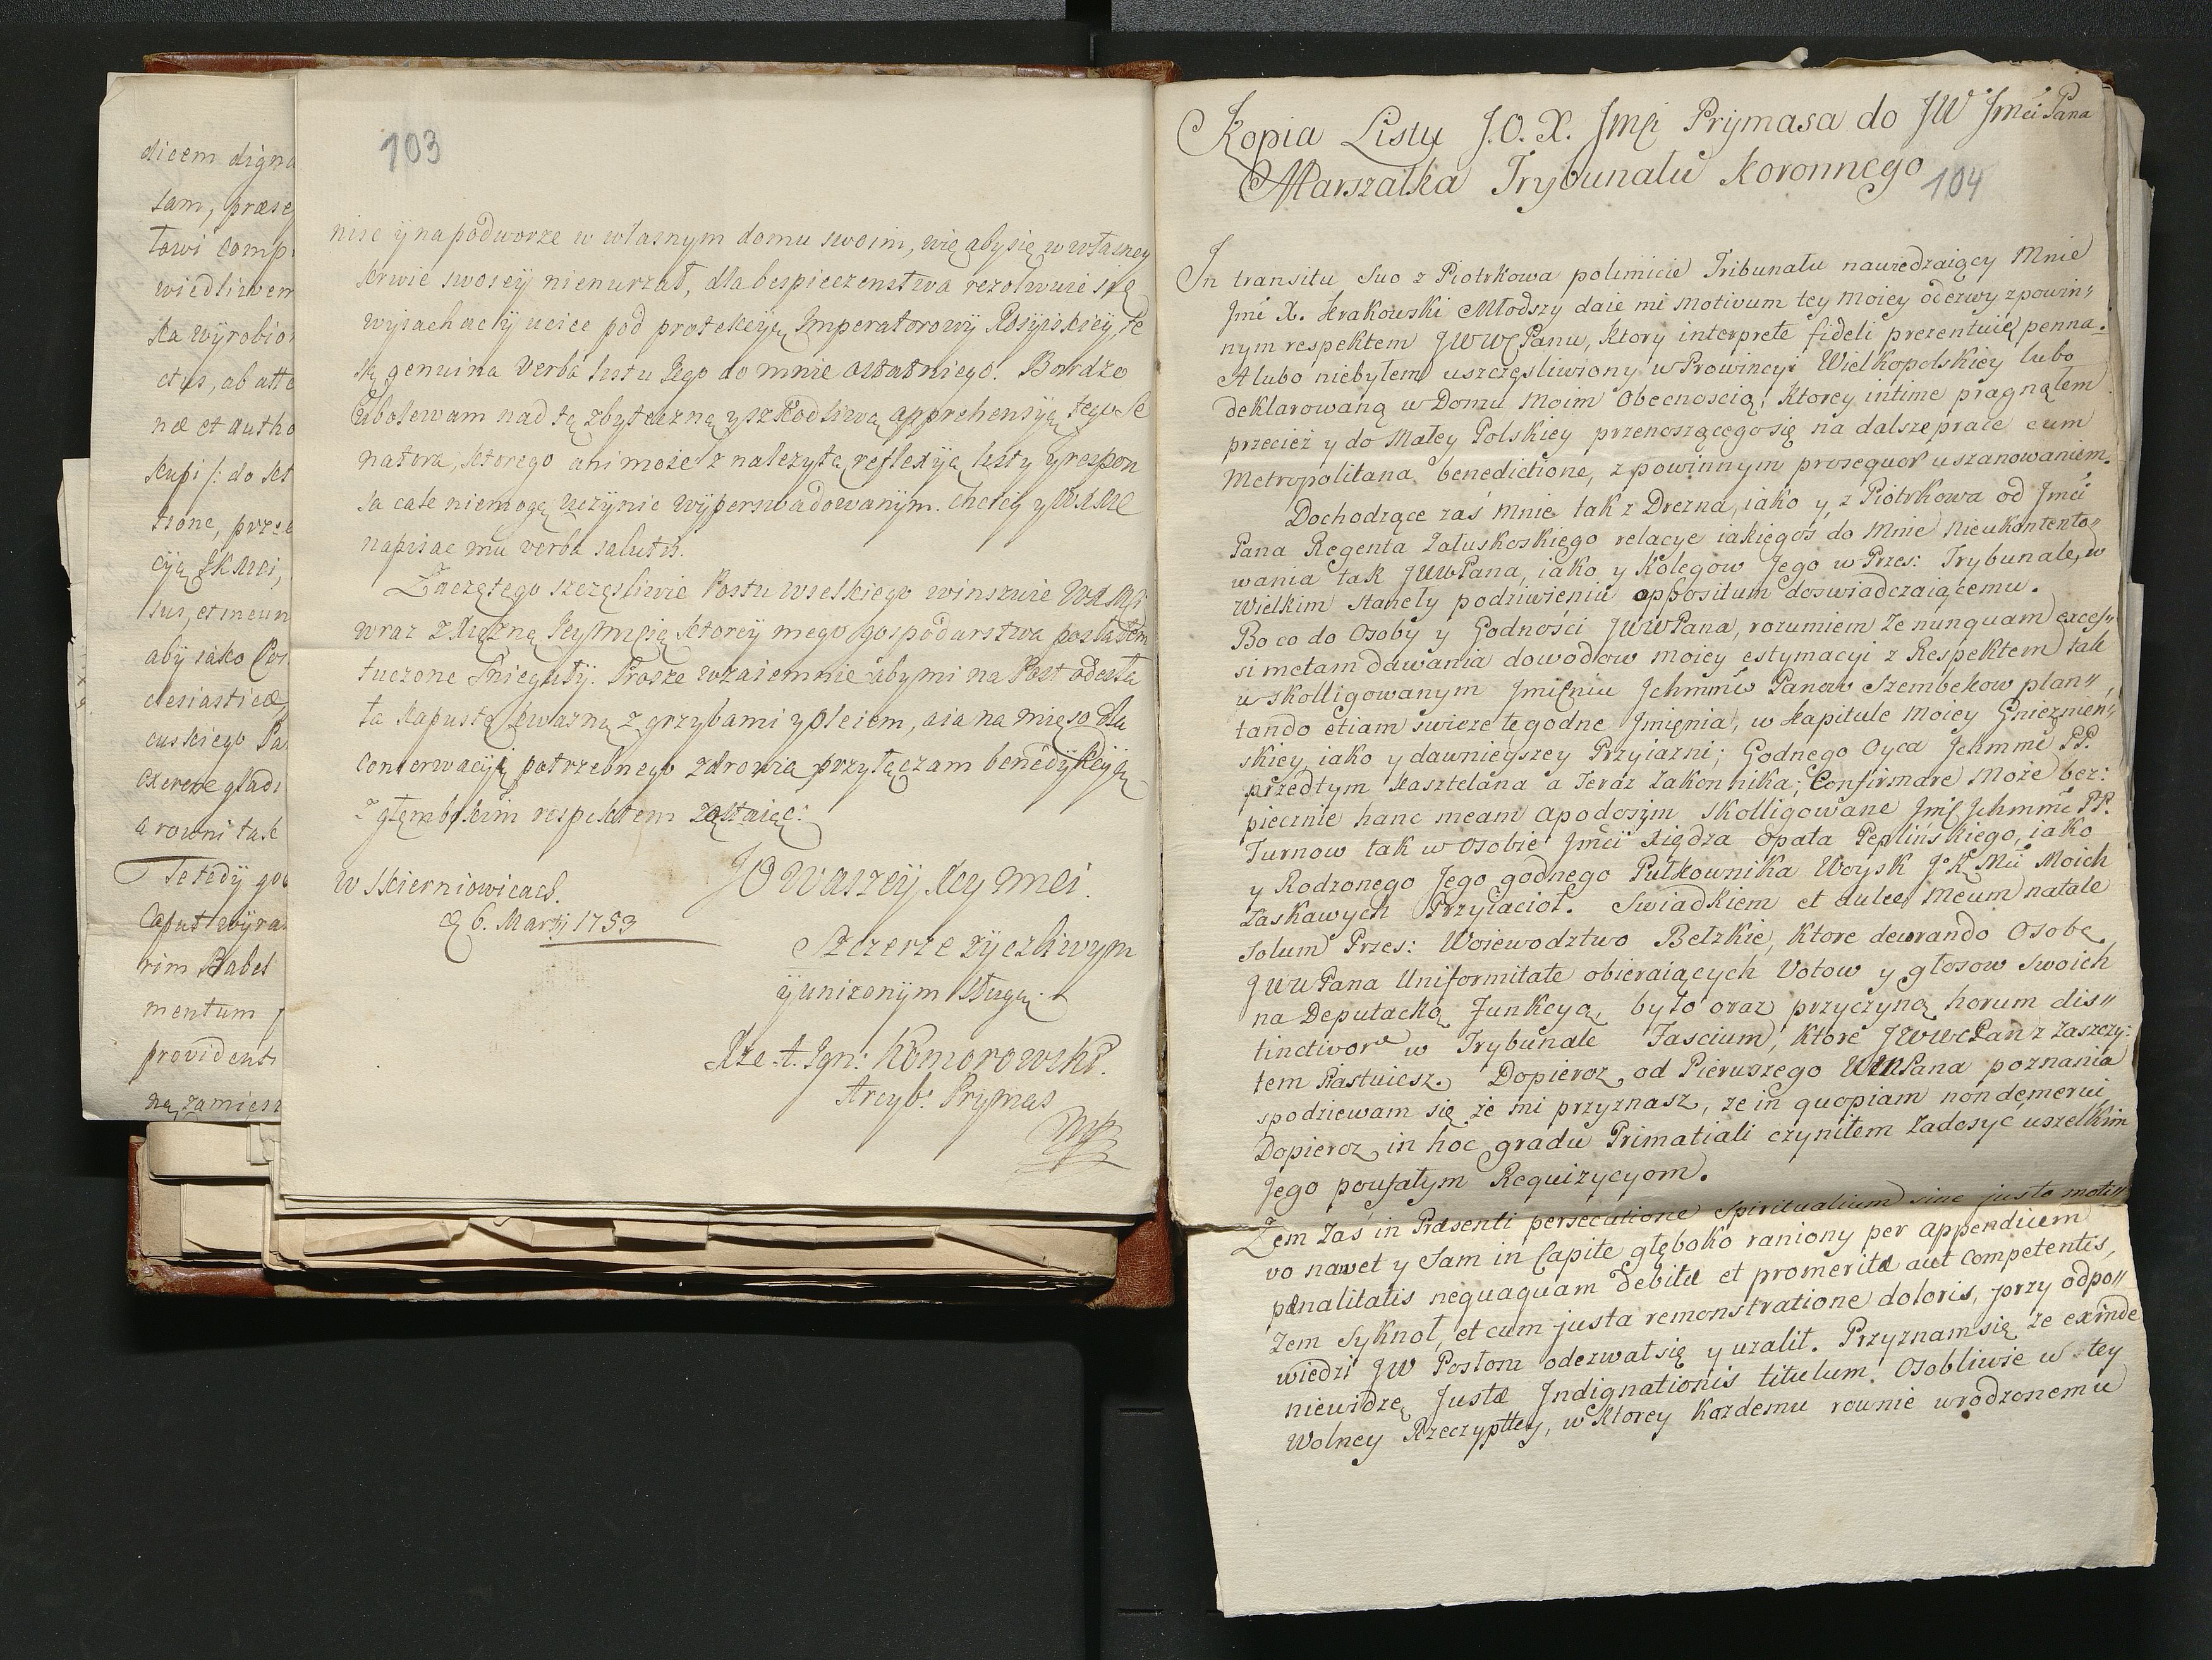 dicem digna
tam, prœse
towi comp
wiedliwem
ka wyrobio
ctus, ab atte
næ et autho
skupi /: do kt
tione, prze
cyą JKMci,
sus, et meum
aby iako
clesiasticæ,
cuskiego Pa
exerere gladi
a rowni tak
Te tedy go
Caput wyra
rim Babel
mentum
provident
ną zamiesz
103
nise ÿ na podworze w własnym domu swoim, więc aby się w własney
krwie swoieÿ nienurzał, dla bespieczenstwa rezolwuie się
wyiachac ÿ uciec pod protekcyą Imperatorowÿ Rosyiskieÿ, te
są genuina verba listu Jego do mnie ostatniego. Bardzo
ubolewam nad tą zbyteczną y szkodliwą apprehensyą tego Se
natora, ktorego ani może z nalezytą reflexyią listy y respon
sa całe niemogą uczynic wyperswadowanym. Chciey y WXMc
napisac mu verba salutis.
Zaczętego szczęsliwie Postu wielkiego winszuie WXMci
wraz z Xiężną Jeymcią ktoreÿ mego gospodarstwa posłałem
tuczone Sniegułÿ. Proszę wzaiemnie aby mi na Post odesła
ła kapustę kwasną z grzybami y oleiem, a ia na mięso dla
conserwacyi potrzebnego zdrowia przyłączam benedykcyią
z głęmbokim respektem zostaiąc:
JO Waszeÿ Xcy Mci
w Skierniowicach.
d 6. Martij 1753
Szczerze zyczliwym
ÿ unizonÿm sługą.
Xże A. Ign: Komorowski.
Arcyb: Prymas
mp
Kopia Listu J.O. X. Jmci Prymasa do JW Jmci Pana
Marszałka Trybunału Koronnego
104
In transitu suo z Piotrkowa polimicie Tribunału nawiedzaiący Mnie
Jmć X. Krakowski Młodszy daie mi motivum tey moiey odezwy, z powin"
nym respektem JWWcPanu, ktory interprete fideli prezentuię penna.
A lubo niebyłem uszczęsliwiony w Prowincyi Wielkopolskiey lubo
deklarowaną w Domu Moim Obecnoscią, ktorey intime pragnąłem
przecież y do Małey Polskiey przenoszącego się na dalsze prace cum
Metropolitana benedictione, z powinnym prosequor uszanowaniem.
Dochodzące zaś mnie tak z Drezna, iako y z Piotrkowa od Jmci
Pana Regenta Załuskoskiego relacye iakiegoś do Mnie nieukontento"
wania tak JWWPana, iako y Kolegow Jego w Przes: Trybunale, w
Wielkim stanęły podziwieniu oppositum doswiadczaiącemu.
Bo co do Osoby y Godności JWWPana, rozumiem że nunquam exces"
si metam dawania dowodow moiey estymacyi z Respektem tak
u skolligowanym Jmięniu Jchmmciw Panow Szembekow plan"
tando etiam swieże te godne Jmięnia, w Kapitule Moiey Gnieznien"
skiey, iako y dawnieyszey Przyiazni; Godnego Oyca Jchmmć PP.
przedtym kasztelana a Teraz Zakonnika; Confirmare Może bez:
piecznie hanc meam apodosim skolligowane Jmię Jchmmć PP.
Turnow tak w osobie Jmci Xiędza Opata Peplińskiego, iako
y Rodzonego Jego godnego Pułkownika Woysk J.K. Mci Moich
Łaskawych Przyiacioł. Swiadkiem et dulce Meum natale
solum Przes: Woiewodztwo Bełzkie, ktore decorando Osobę
JWWPana Uniformitate obieraiących Votow y głosow swoich
na Deputacką Funkcyą, było oraz przyczyną horum dis"
tinctivor: w Trybunale Fascium, ktore JWWcPan z zaszczy:
tem Piastuiesz. Dopieroz od Pierwszego WWPana poznania
spodziewam się że mi przyznasz, że in quopiam non demerui,
Dopieroz in hoc gradu Primatiali czyniłem zadosyć wszelkim
Jego poufałym Requizycyom.
Zem zaś in Præsenti persecutione Spiritualium sine justo moti"
vo nawet y Sam in Capite głęboko raniony per appendicem
pœnalitatis nequaquam debitæ et promeritæ aut competentis,
zem syknoł, et cum justa remonstratione doloris, przy odpo"
wiedzi JW Posłom odezwał się y uzalił. Przyznam się że exinde
niewidzę Justæ Indignationis titulum. Osobliwie w tey
Wolney Rzeczyptey, w ktorey każdemu rownie wrodzonemu